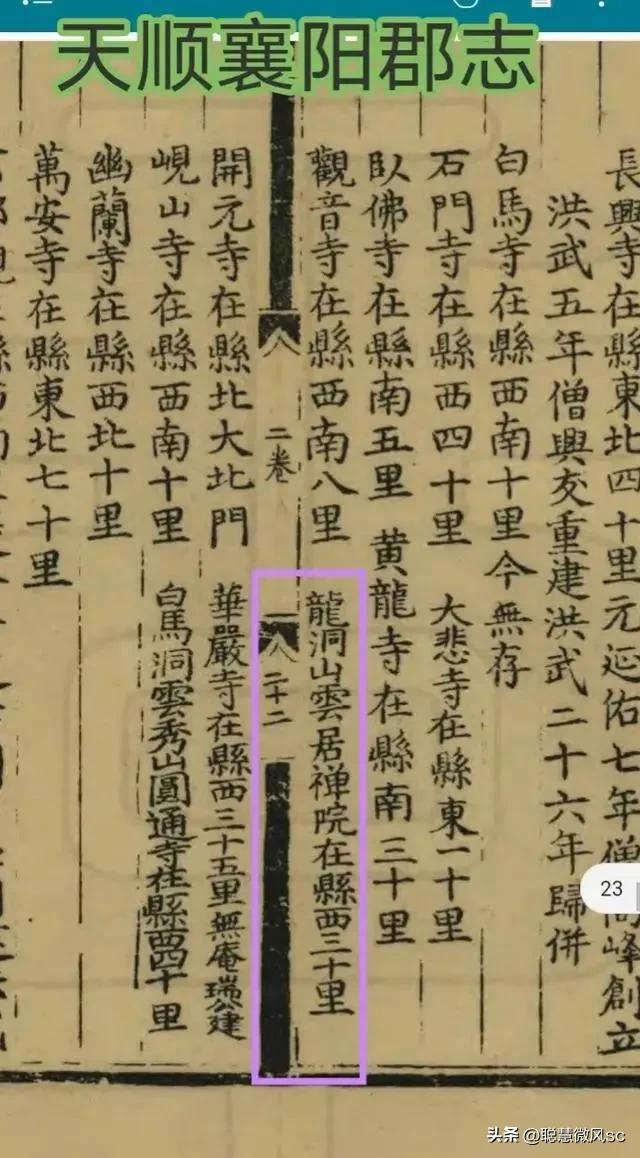 天顺襄阳郡志
長興寺在縣東北四十里元延佑七年僧高峰創立
洪武五年僧興交重建洪武二十六年歸併
白馬寺在縣西南十里今無存
石門寺在縣西四十里 大悲寺在縣東一十里
臥佛寺在縣南五里 黄龍寺在縣南三十里
觀音寺在縣西南八里 龍洞山雲居禅院在縣西三十里
二卷 二十二
開元寺在縣北大北門 華嚴寺在縣西三十五里無庵瑞公建
峴山寺在縣西南十里 白馬洞雲秀山圓通寺在縣西四十里
幽蘭寺在縣西北十里
萬安寺在縣東北七十里
23
头条 @聪慧微风sc